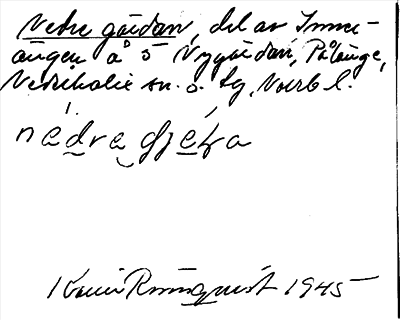 Nedre gärdan, del av Inner-
ängen å 5 Nygårdan, Pålänge,
Nederkalix sn. o. tg, Norrb l.
nédra djéḷa
Karin Rönnqvist 1945